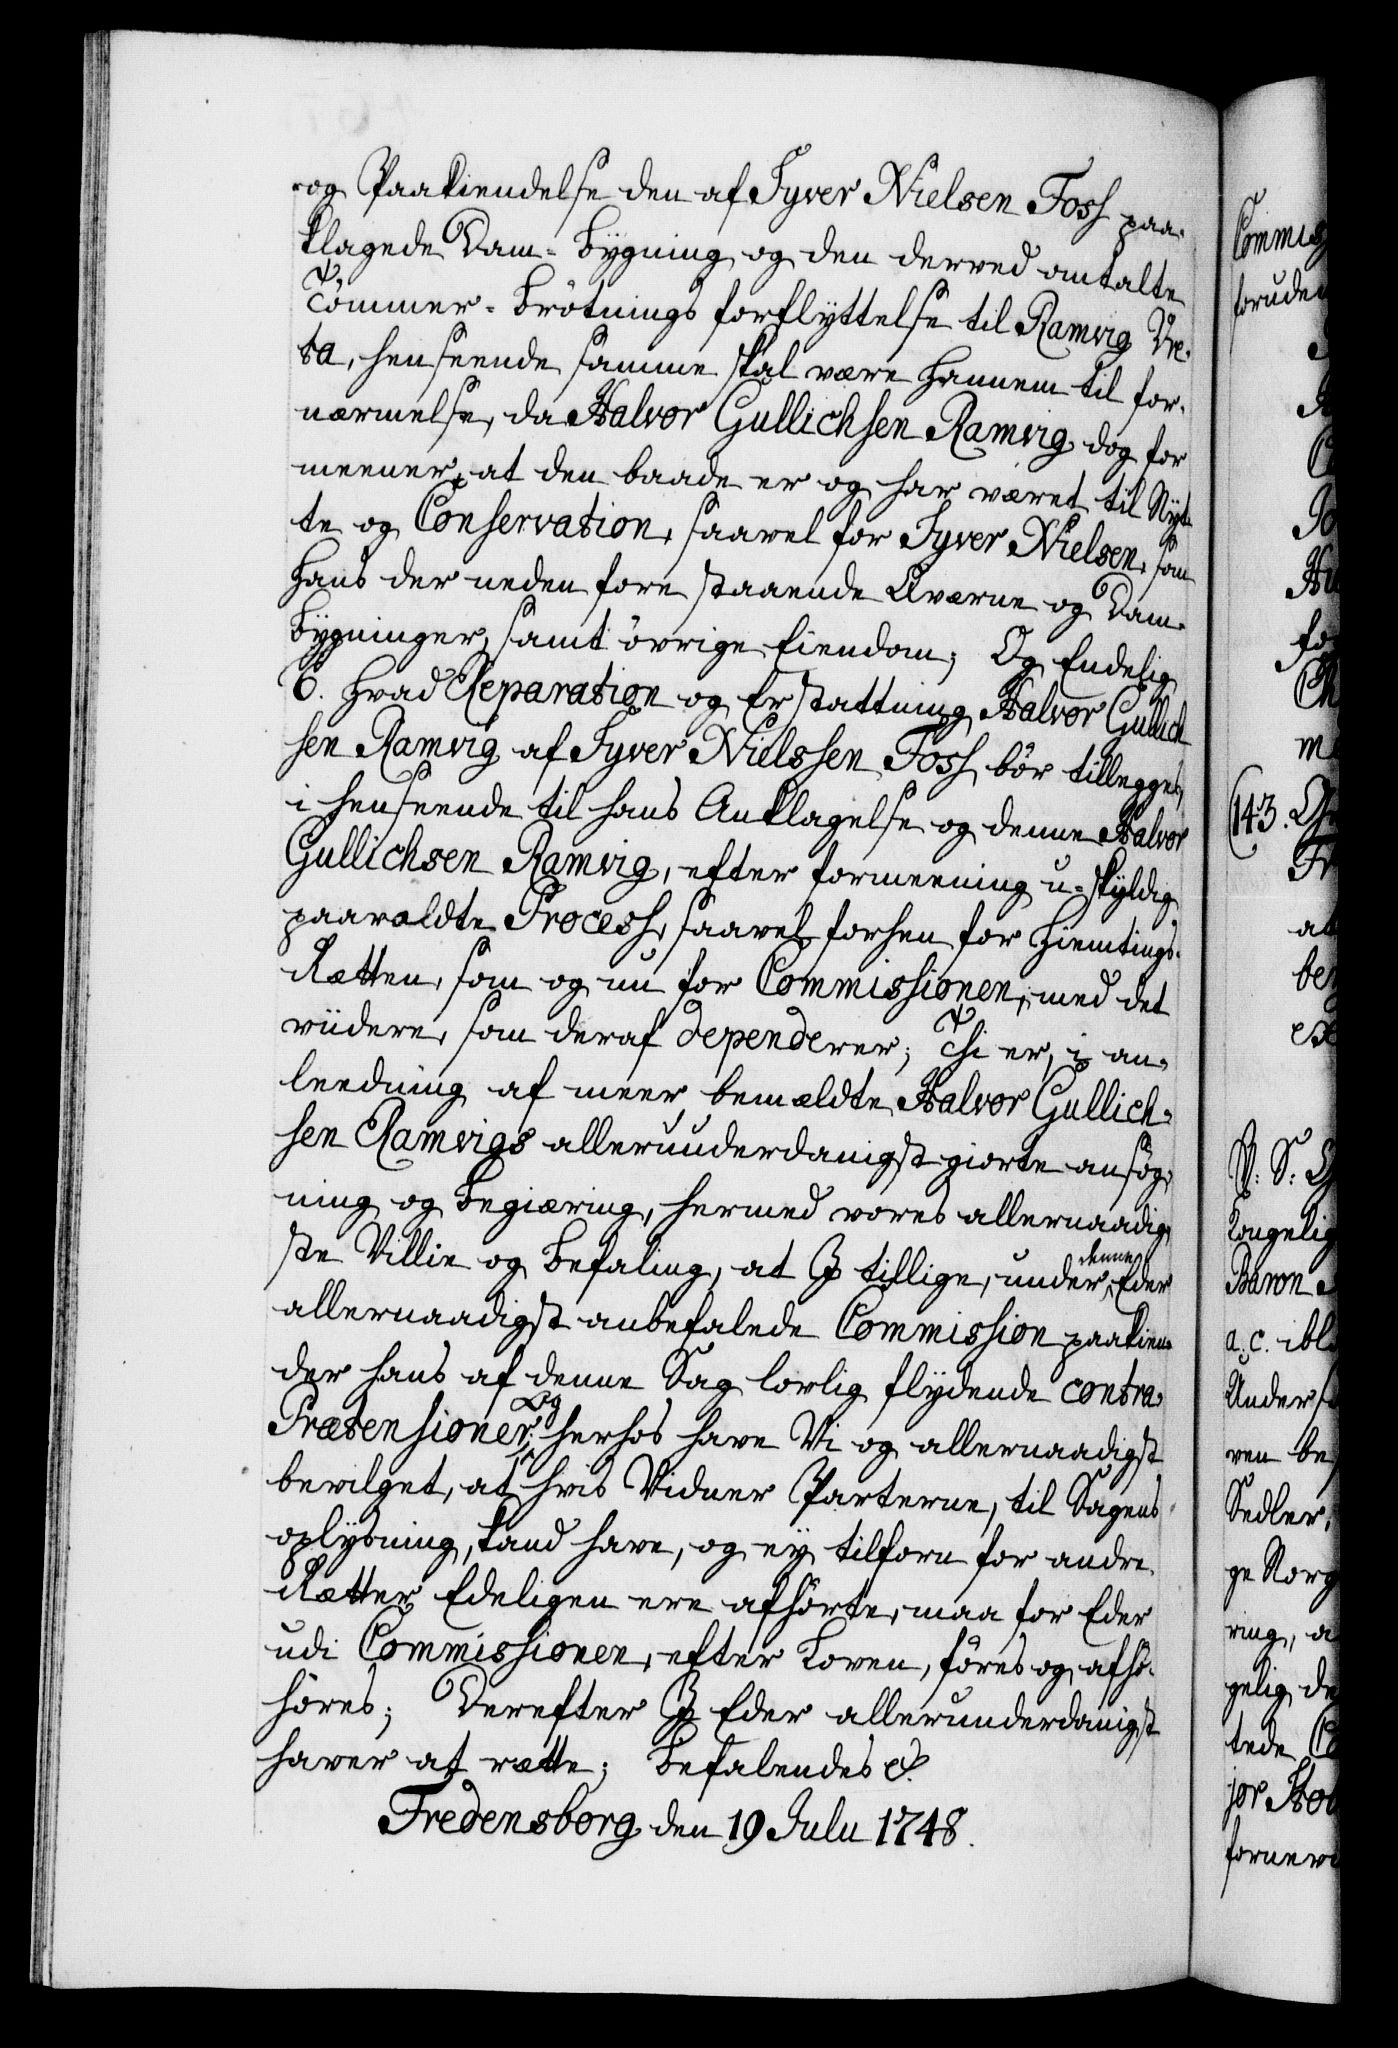 og Paakiendelse den af Fyver Nielsen Fosh paa-
klagede Dam-bygning og den derved antalte
Tömmer-brötnings forflyttelse til Ramvig Ve-
ta, henseende samme skal være hannem til for-
nærmelse, da Halvor Gullichsen Ramvig dog for
meener, at den baade er og har været til Nyt-
te og Conservation, saavel for Fyver Nielsen, som
hans der neden fore staaende Qværne og Dam-
bygninger, samt övrige Eiendom; Og Endelig
6. hvad Reparation og Erstattning Halvor Gullich
sen Ramvig af Fyver Nielssen Fosh bör tillegges,
i henseende til hans Anklagelse og denne Halvor
Gullichsen Ramvig, efter formeening u-skyldig
paavoldte Process, saavel forhen for Hiemtings-
Rætten, som og nu for Commissionen, med det
viidere, som deraf dependerer; Thi er, i an-
leedning af meer bemældte Halvor Gullich-
sen Ramvigs allerunderdanigst giorte ansög-
ning og begiæring, hermed vores allernaadig-
ste Villie og befaling, at I tillige, under denne Eder
allernaadigst anbefalede Commission paakien-
der hans af denne Sag lovlig flydende contra-
Prætensioner; Og herhos have Vi og allernaadigst
bevilget, at hvis Vidner Parterne, til Sagens
oplysning, kand have, og ey tilforn for andre
Rætter Edeligen ere afhörte, maa for Eder
udi Commissionen, efter Loven, föres og afhö-
höres; Derefter I Eder allerunderdanigst
haver at rætte; Befalendes etc.
Fredensborg den 19 Julii 1748.
Commis
foruden
143.
Kongelig
Baron
a. c. ibl
Under
ven be
Sedler,
ge Norg
ring, a
gelig de
tede
jor